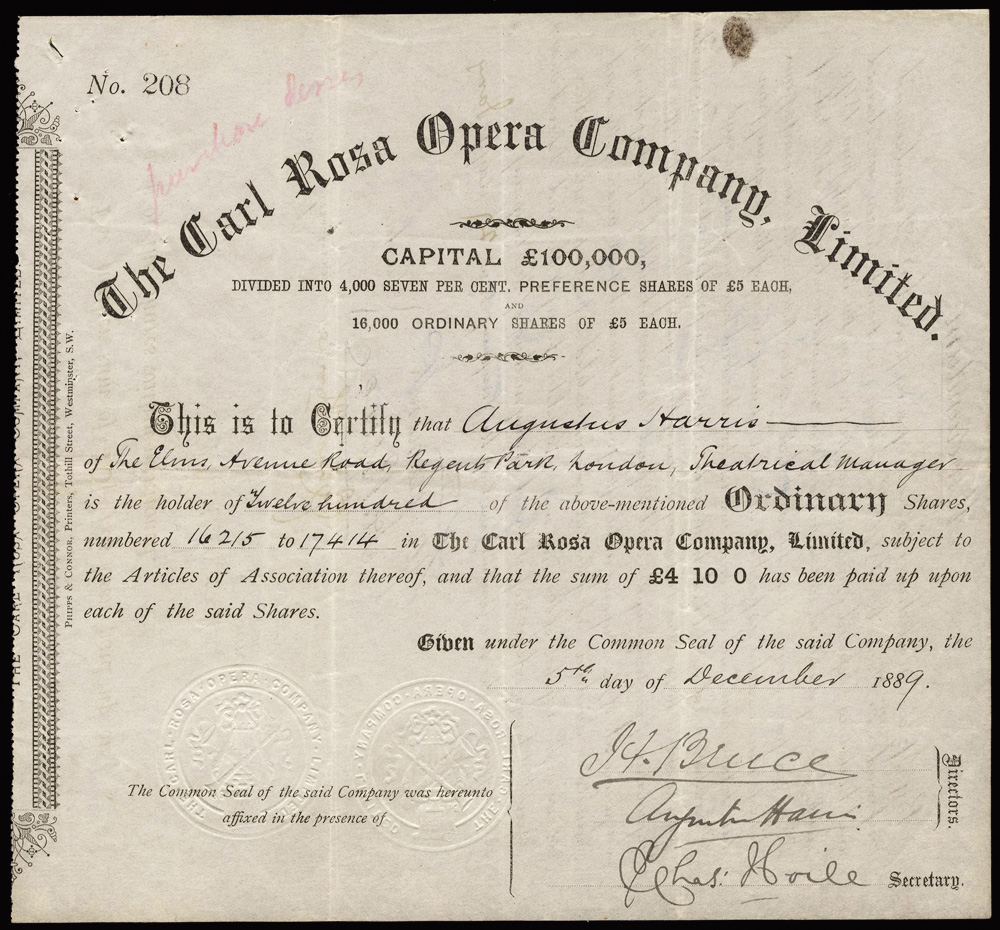 No. 208
The Carl Rosa Opera Company, Limited.
CAPITAL £100,000,
DIVIDED INTO 4,000 SEVEN PER CENT. PREFERENCE SHARES OF £5 EACH,
AND
16,000 ORDINARY SHARES OF £5 EACH.
This is to Certify that Augustus Harris
of The Elms, Avenue Road, Regents Park, London, Theatrical Manager
is the holder of Twelve hundred of the above-mentioned Ordinary Shares,
numbered 16215 to 17414 in The Carl Rosa Opera Company, Limited, subject to
the Articles of Association thereof, and that the sum of £4 10 0 has been paid up upon
each of the said Shares.
Given under the Common Seal of the said Company, the
5th day of December 1889.
The Common Seal of the said Company was hereunto
affixed in the presence of
H. Bruce
Augustus Harris
Directors.
Chas: Hoile Secretary.
PHIPPS & CONNOR, Printers, Tothill Street, Westminster, S.W.
THE CARL ROSA OPERA COMPANY LIMITED